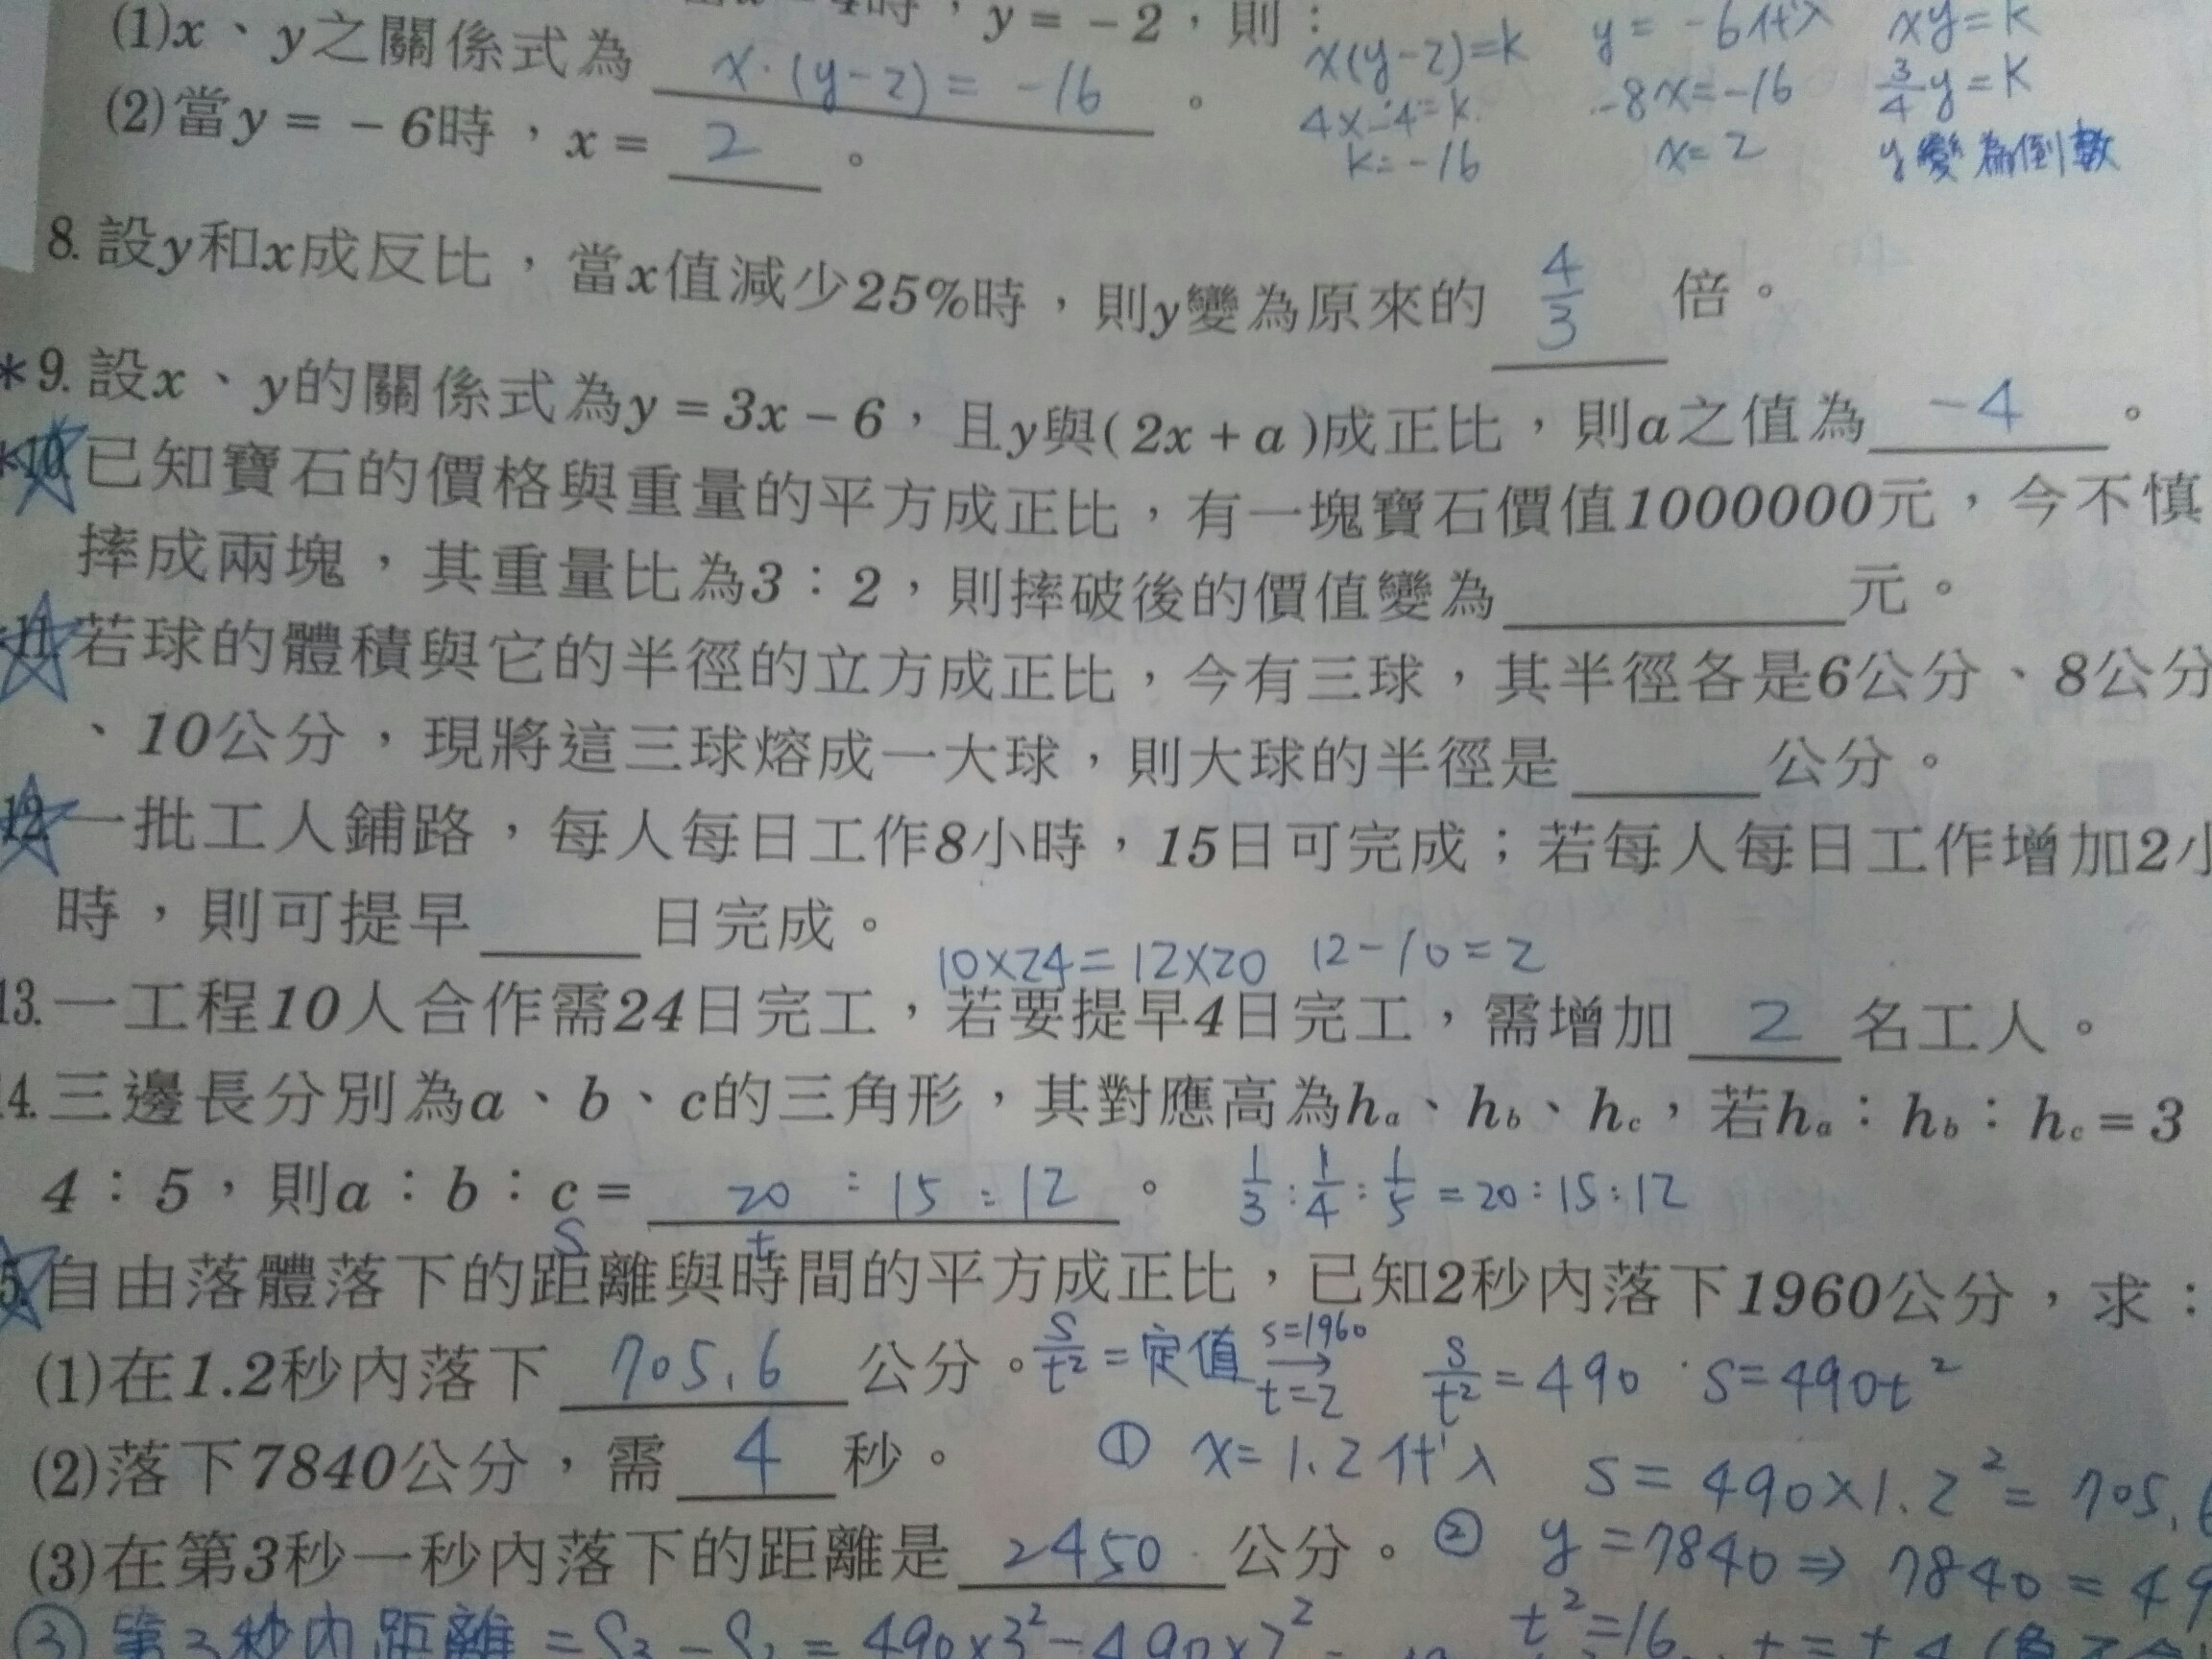 4時，y=-2，則：
(1)x、y之關係式為 x·(y-2)=-16 。 x(y-2)=k y=-6代入 xy=k
4×-4=k -8x=-16 3/4 y=k
(2)當y=-6時，x= 2 。 k=-16 x=2 y變為倒數
8. 設y和x成反比，當x值減少25%時，則y變為原來的 4/3 倍。
*9. 設x、y的關係式為y=3x-6，且y與(2x+a)成正比，則a之值為 -4 。
*10. 已知寶石的價格與重量的平方成正比，有一塊寶石價值1000000元，今不慎
摔成兩塊，其重量比為3：2，則摔破後的價值變為____元。
11. 若球的體積與它的半徑的立方成正比，今有三球，其半徑各是6公分、8公分
、10公分，現將這三球熔成一大球，則大球的半徑是____公分。
12. 一批工人鋪路，每人每日工作8小時，15日可完成；若每人每日工作增加2小
時，則可提早____日完成。
10×24=12×20 12-10=2
13. 一工程10人合作需24日完工，若要提早4日完工，需增加 2 名工人。
14. 三邊長分別為a、b、c的三角形，其對應高為ha、hb、hc，若ha：hb：hc=3
4：5，則a：b：c= 20：15：12 。 1/3：1/4：1/5=20：15：12
S t
5. 自由落體落下的距離與時間的平方成正比，已知2秒內落下1960公分，求：
(1)在1.2秒內落下 705.6 公分。 s/t²=定值 s=1960 → t=2 s/t²=490 s=490t²
(2)落下7840公分，需 4 秒。 ① x=1.2代入 s=490×1.2²=705.6
(3)在第3秒一秒內落下的距離是 2450 公分。 ② y=7840⇒7840=49
③ 第3秒內距離=S3-S2=490×3²-490×2² t²=16